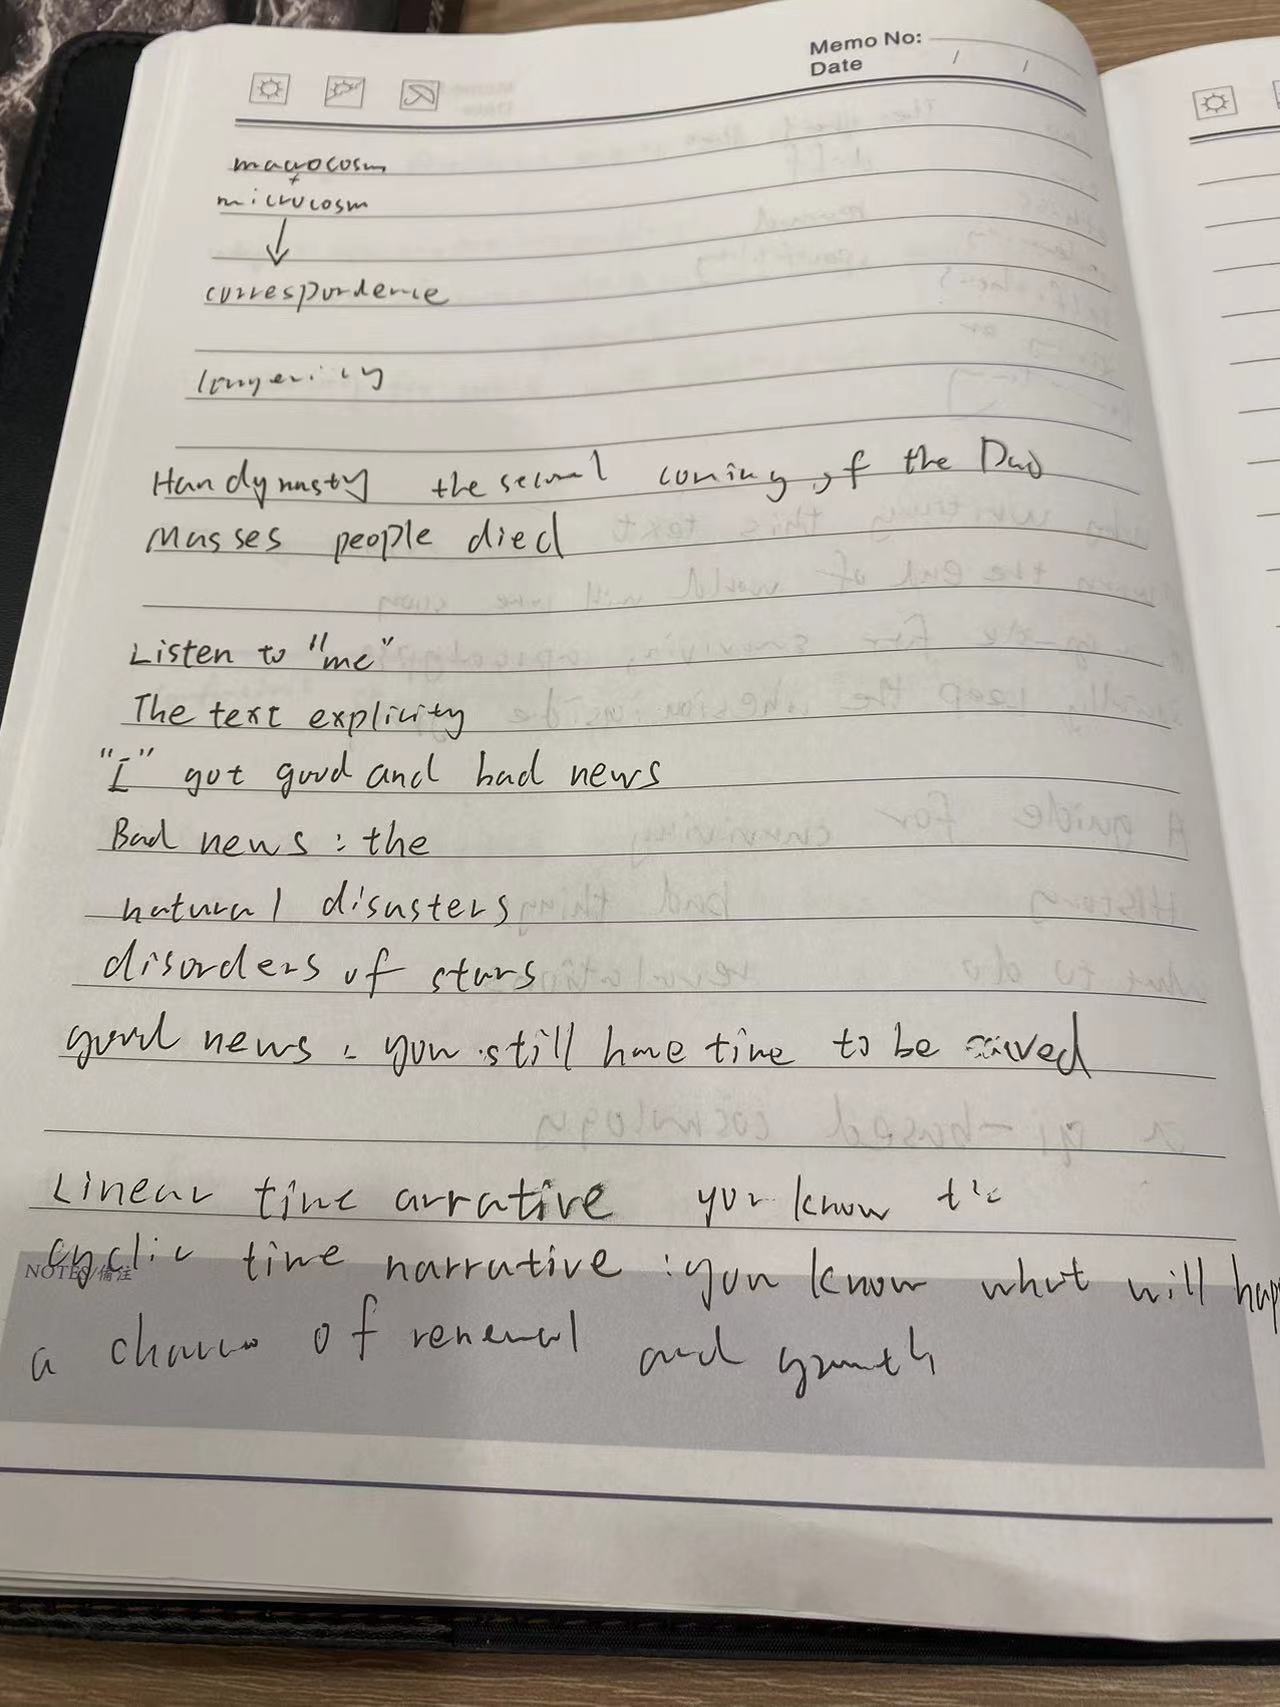 Memo No:
Date / /
macrocosm
+
microcosm
correspondence
longevity
Han dynasty the second coming of the Dao
Masses people died
Listen to "me"
The text explicity
"I" got good and bad news
Bad news : the
natural disasters
disorders of stars
good news : you still have time to be saved
Linear time arrative you know the
cyclic time narrative : you know what will hap
NOTES/備注
a chance of renewal and growth